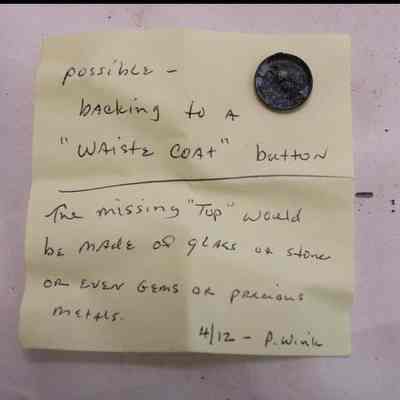 possible -
backing to a
"Waiste Coat" button
The missing "Top" would
be made of glass or stone
or even gems or precious
metals.
4/12 - P. Wink